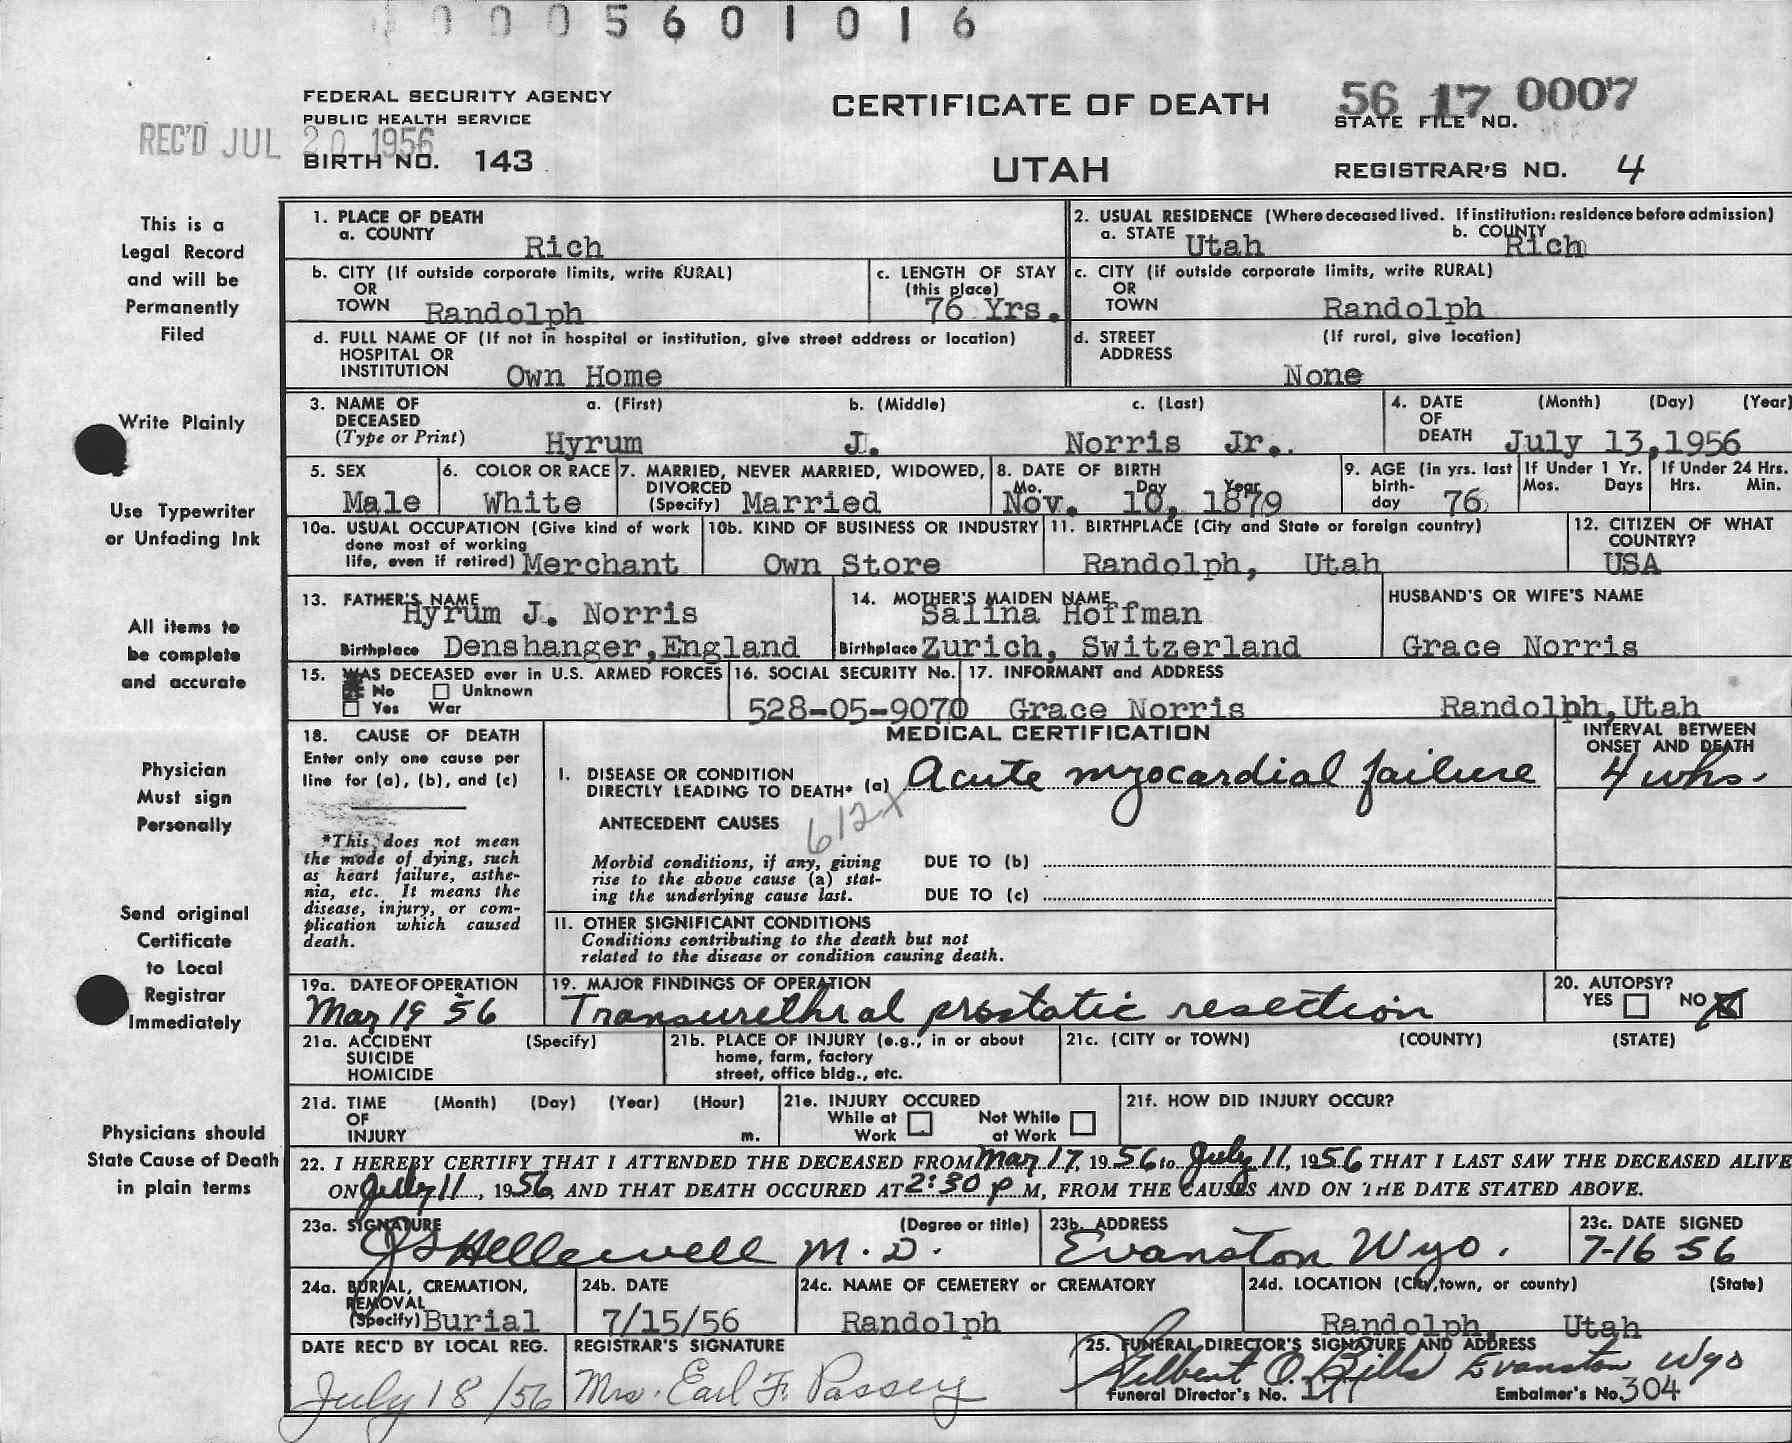 0005601016
FEDERAL SECURITY AGENCY
PUBLIC HEALTH SERVICE
REC'D JUL 20 1956
BIRTH NO. 143
CERTIFICATE OF DEATH
UTAH
56 17 0007
STATE FILE NO.
REGISTRAR'S NO. 4
This is a
Legal Record
and will be
Permanently
Filed
Write Plainly
Use Typewriter
or Unfading Ink
All items to
be complete
and accurate
Physician
Must sign
Personally
Send original
Certificate
to Local
Registrar
Immediately
Physicians should
State Cause of Death
in plain terms
1. PLACE OF DEATH
a. COUNTY Rich
2. USUAL RESIDENCE (Where deceased lived. If institution: residence before admission)
a. STATE Utah b. COUNTY Rich
b. CITY (If outside corporate limits, write RURAL)
OR
TOWN Randolph
c. LENGTH OF STAY
(this place)
76 Yrs.
c. CITY (if outside corporate limits, write RURAL)
OR
TOWN Randolph
d. FULL NAME OF (If not in hospital or institution, give street address or location)
HOSPITAL OR
INSTITUTION Own Home
d. STREET (If rural, give location)
ADDRESS
None
3. NAME OF a. (First) b. (Middle) c. (Last)
DECEASED
(Type or Print) Hyrum J. Norris Jr.
4. DATE (Month) (Day) (Year)
OF
DEATH July 13,1956
5. SEX
Male
6. COLOR OR RACE
White
7. MARRIED, NEVER MARRIED, WIDOWED,
DIVORCED
(Specify) Married
8. DATE OF BIRTH
Mo. Day Year
Nov. 10, 1879
9. AGE (in yrs. last
birth-
day 76
If Under 1 Yr.
Mos. Days
If Under 24 Hrs.
Hrs. Min.
10a. USUAL OCCUPATION (Give kind of work
done most of working
life, even if retired) Merchant
10b. KIND OF BUSINESS OR INDUSTRY
Own Store
11. BIRTHPLACE (City and State or foreign country)
Randolph, Utah
12. CITIZEN OF WHAT
COUNTRY?
USA
13. FATHER'S NAME
Hyrum J. Norris
Birthplace Denshanger,England
14. MOTHER'S MAIDEN NAME
Salina Hoffman
Birthplace Zurich, Switzerland
HUSBAND'S OR WIFE'S NAME
Grace Norris
15. WAS DECEASED ever in U.S. ARMED FORCES
No Unknown
Yes War
16. SOCIAL SECURITY No.
528-05-9070
17. INFORMANT and ADDRESS
Grace Norris Randolph,Utah
18. CAUSE OF DEATH
Enter only one cause per
line for (a), (b), and (c)
*This does not mean
the mode of dying, such
as heart failure, asthe-
nia, etc. It means the
disease, injury, or com-
plication which caused
death.
MEDICAL CERTIFICATION
INTERVAL BETWEEN
ONSET AND DEATH
I. DISEASE OR CONDITION
DIRECTLY LEADING TO DEATH* (a) Acute myocardial failure
4 whs.
ANTECEDENT CAUSES
612x
Morbid conditions, if any, giving
rise to the above cause (a) stat-
ing the underlying cause last.
DUE TO (b)
DUE TO (c)
II. OTHER SIGNIFICANT CONDITIONS
Conditions contributing to the death but not
related to the disease or condition causing death.
19a. DATE OF OPERATION
Mar 19 56
19. MAJOR FINDINGS OF OPERATION
Transurethral prostatic resection
20. AUTOPSY?
YES NO X
21a. ACCIDENT (Specify)
SUICIDE
HOMICIDE
21b. PLACE OF INJURY (e.g., in or about
home, farm, factory
street, office bldg., etc.
21c. (CITY or TOWN) (COUNTY) (STATE)
21d. TIME (Month) (Day) (Year) (Hour)
OF
INJURY m.
21e. INJURY OCCURED
While at Not While
Work at Work
21f. HOW DID INJURY OCCUR?
22. I HEREBY CERTIFY THAT I ATTENDED THE DECEASED FROM Mar 17, 1956 to July 11, 1956 THAT I LAST SAW THE DECEASED ALIVE
ON July 11, 1956, AND THAT DEATH OCCURED AT 2:30 p M, FROM THE CAUSES AND ON THE DATE STATED ABOVE.
23a. SIGNATURE (Degree or title)
JS Hellewell M.D.
23b. ADDRESS
Evanston Wyo.
23c. DATE SIGNED
7-16 56
24a. BURIAL, CREMATION,
REMOVAL
(Specify) Burial
24b. DATE
7/15/56
24c. NAME OF CEMETERY or CREMATORY
Randolph
24d. LOCATION (City, town, or county) (State)
Randolph, Utah
DATE REC'D BY LOCAL REG.
July 18/56
REGISTRAR'S SIGNATURE
Mrs. Earl F. Passey
25. FUNERAL DIRECTOR'S SIGNATURE AND ADDRESS
Gilbert O. Bills Evanston Wyo
Funeral Director's No. Embalmer's No. 304